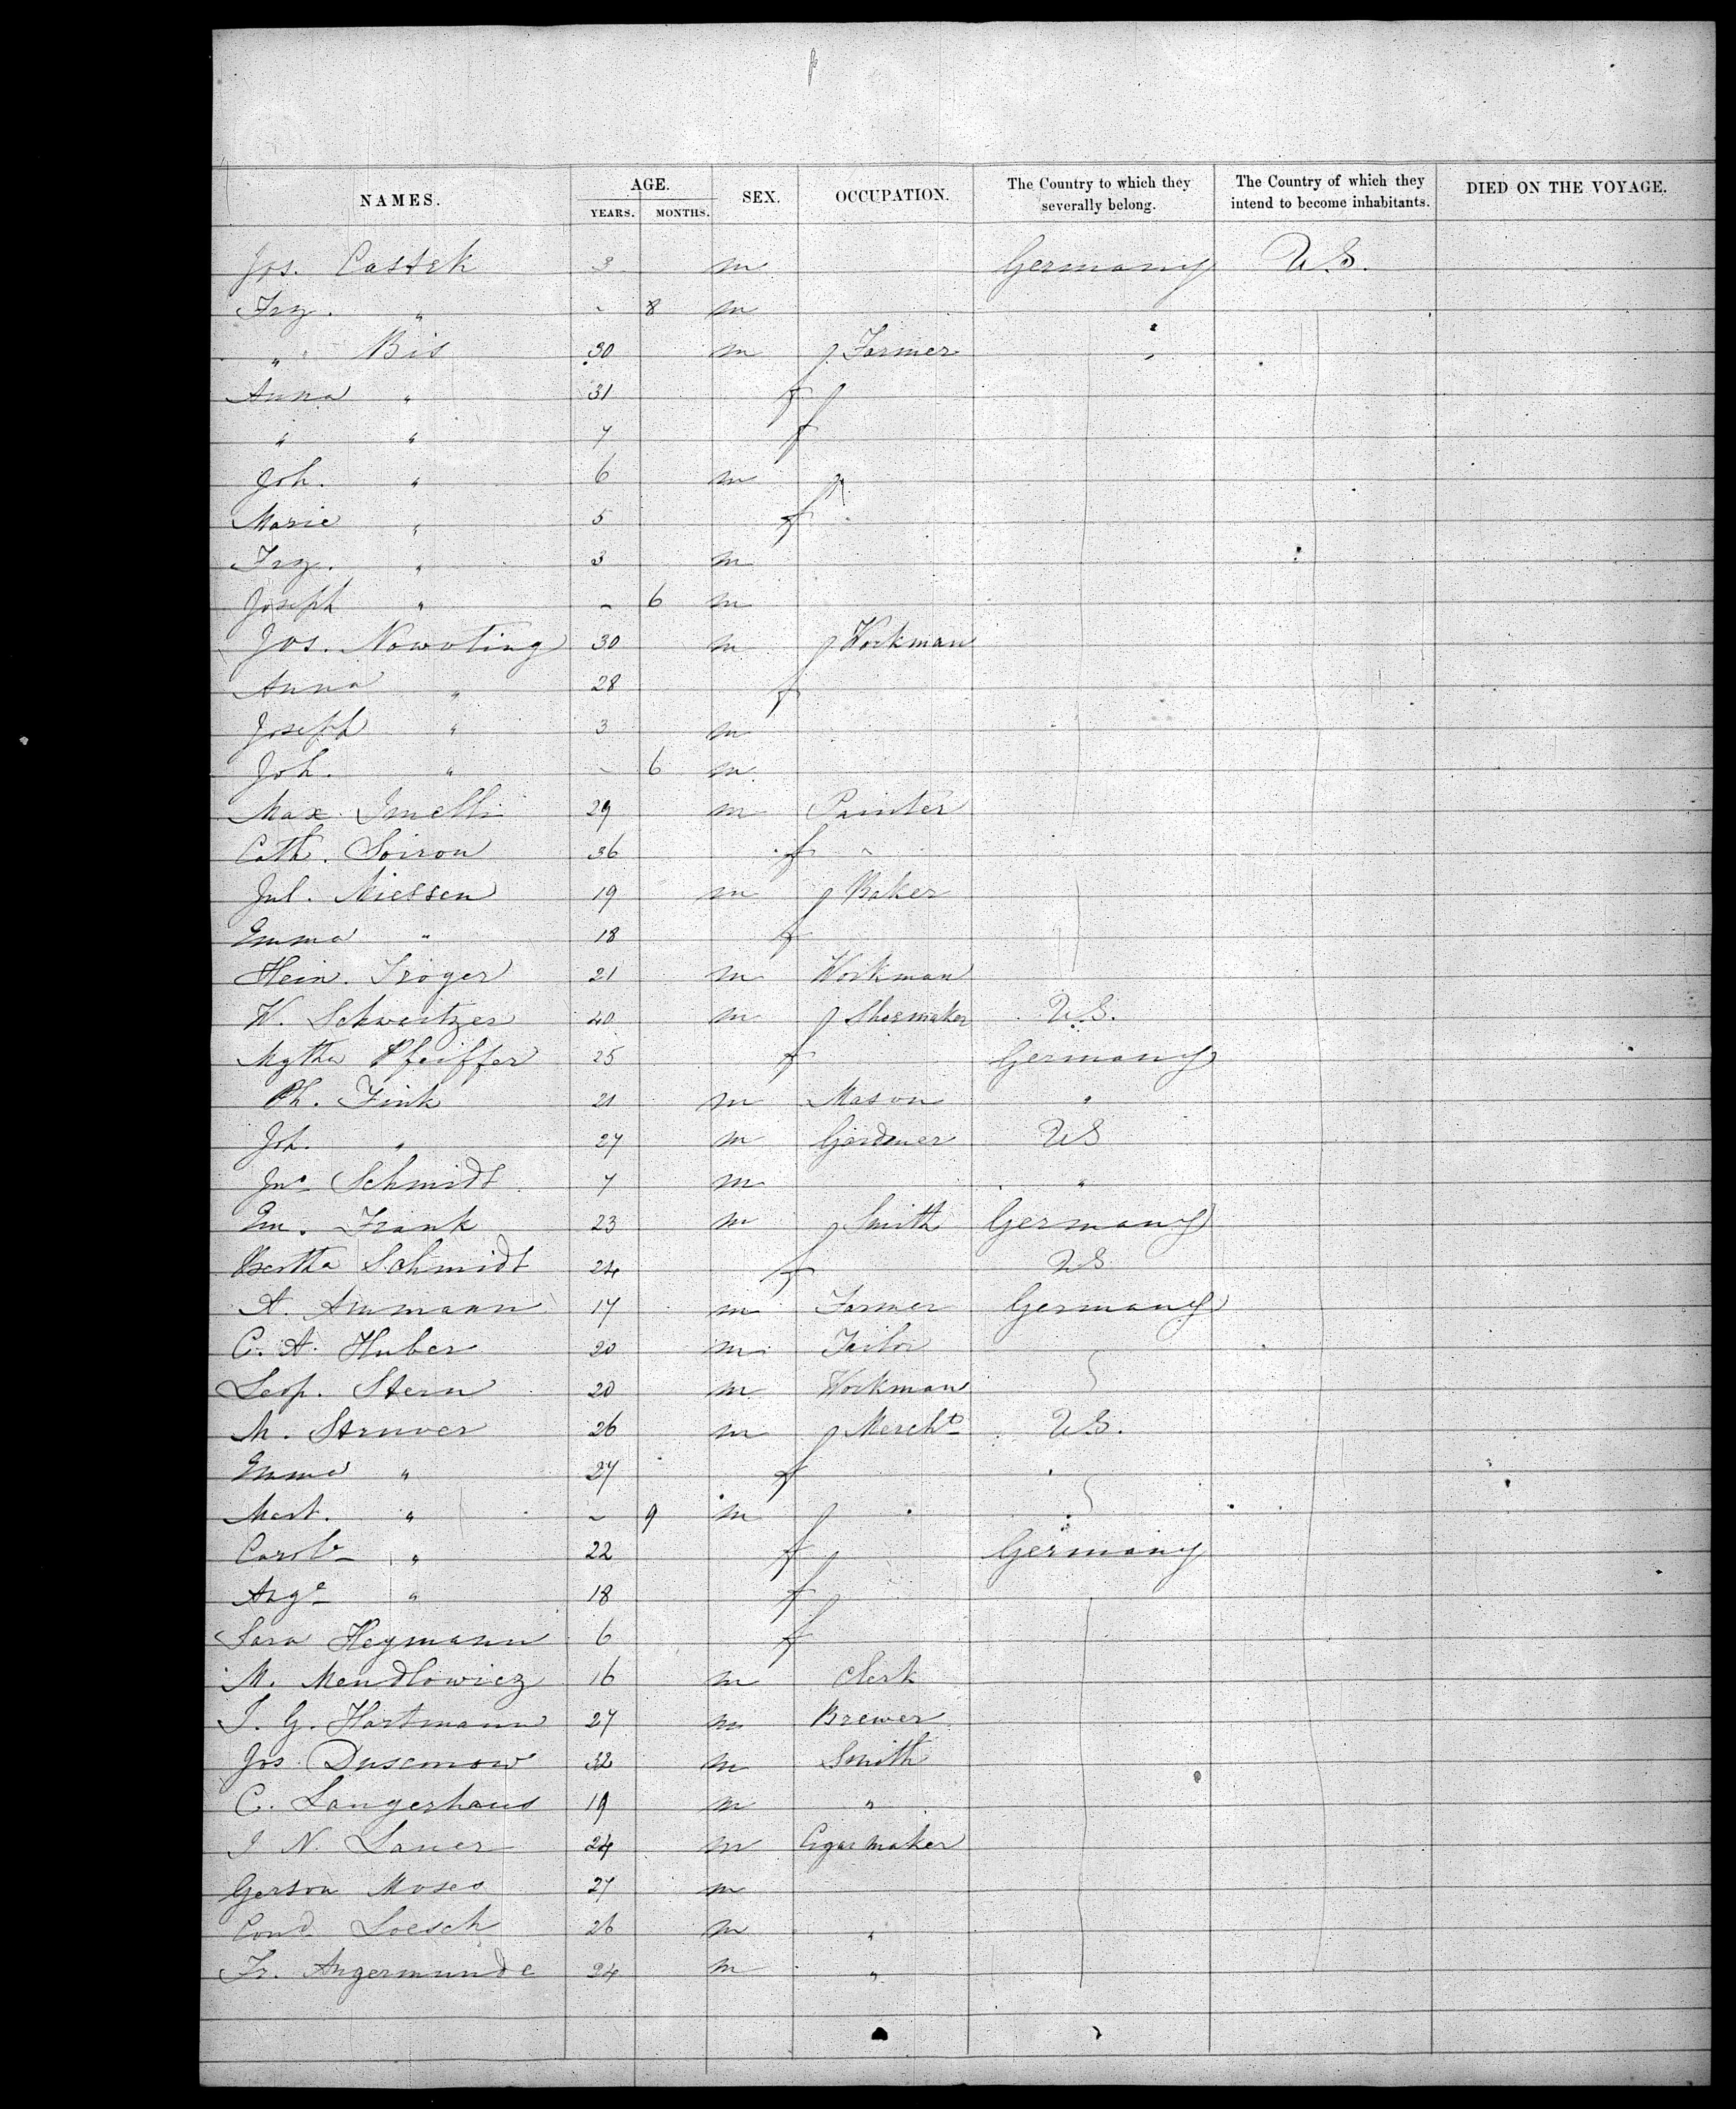 NAMES. AGE. SEX. OCCUPATION. The Country to which they severally belong. The Country of which they intend to become inhabitants. DIED ON THE VOYAGE.
YEARS. MONTHS.
Jos. Castek 3 m Germany U.S.
Frz. " - 8 m
" Bis 30 m Farmer "
Anna " 31 f
" " 7 f
Joh. " 6 m
Marie " 5 f
Frz. " 3 m
Joseph " - 6 m
Jos. Nowoting 30 m Workman
Anna " 28 f
Joseph " 3 m
Joh. " - 6 m
Max 29 m Painter
Cath. Soiron 36 f -
Jul. Niessen 19 m Baker
Emma " 18 f
Hein. Troger 21 m Workman
W. Schweitzer 40 m Shoemaker U.S.
Mgtha Pfeiffer 25 f Germany
Ph. Fink 21 m Mason "
Joh. " 27 m Gardener US
Jno Schmidt 7 m "
Em. Frank 23 m Smith Germany
Bertha Schmidt 24 f US
A. Ammann 17 m Farmer Germany
C. A. Huber 20 m Tailor
Leop. Stern 20 m Workman
M. Struver 26 m Mercht U.S.
Emma " 27 f
Mart. " - 9 m
Carole " 22 f Germany
Auge " 18 f
Sara Heymann 6 f
M. Mendlowicz 16 m Clerk
J. G. Hartmann 27 m Brewer
Jos. 32 m Smith
C. Langerhans 19 m "
J N. Lauer 24 m Cigar maker
Gerson Moses 27 m
Cond Loesch 26 m "
Fr. Angermunde 24 m "